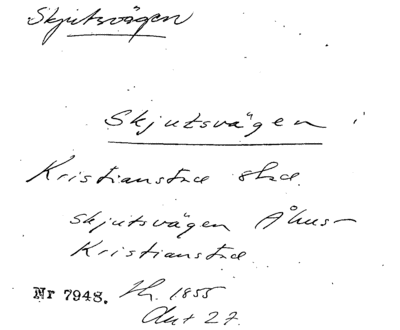 Skjutsvägen
Skjutsvägen i
Kristianstad stad.
Skjutsvägen Åhus-
Kristianstad.
Nr 7948. 1855
27.